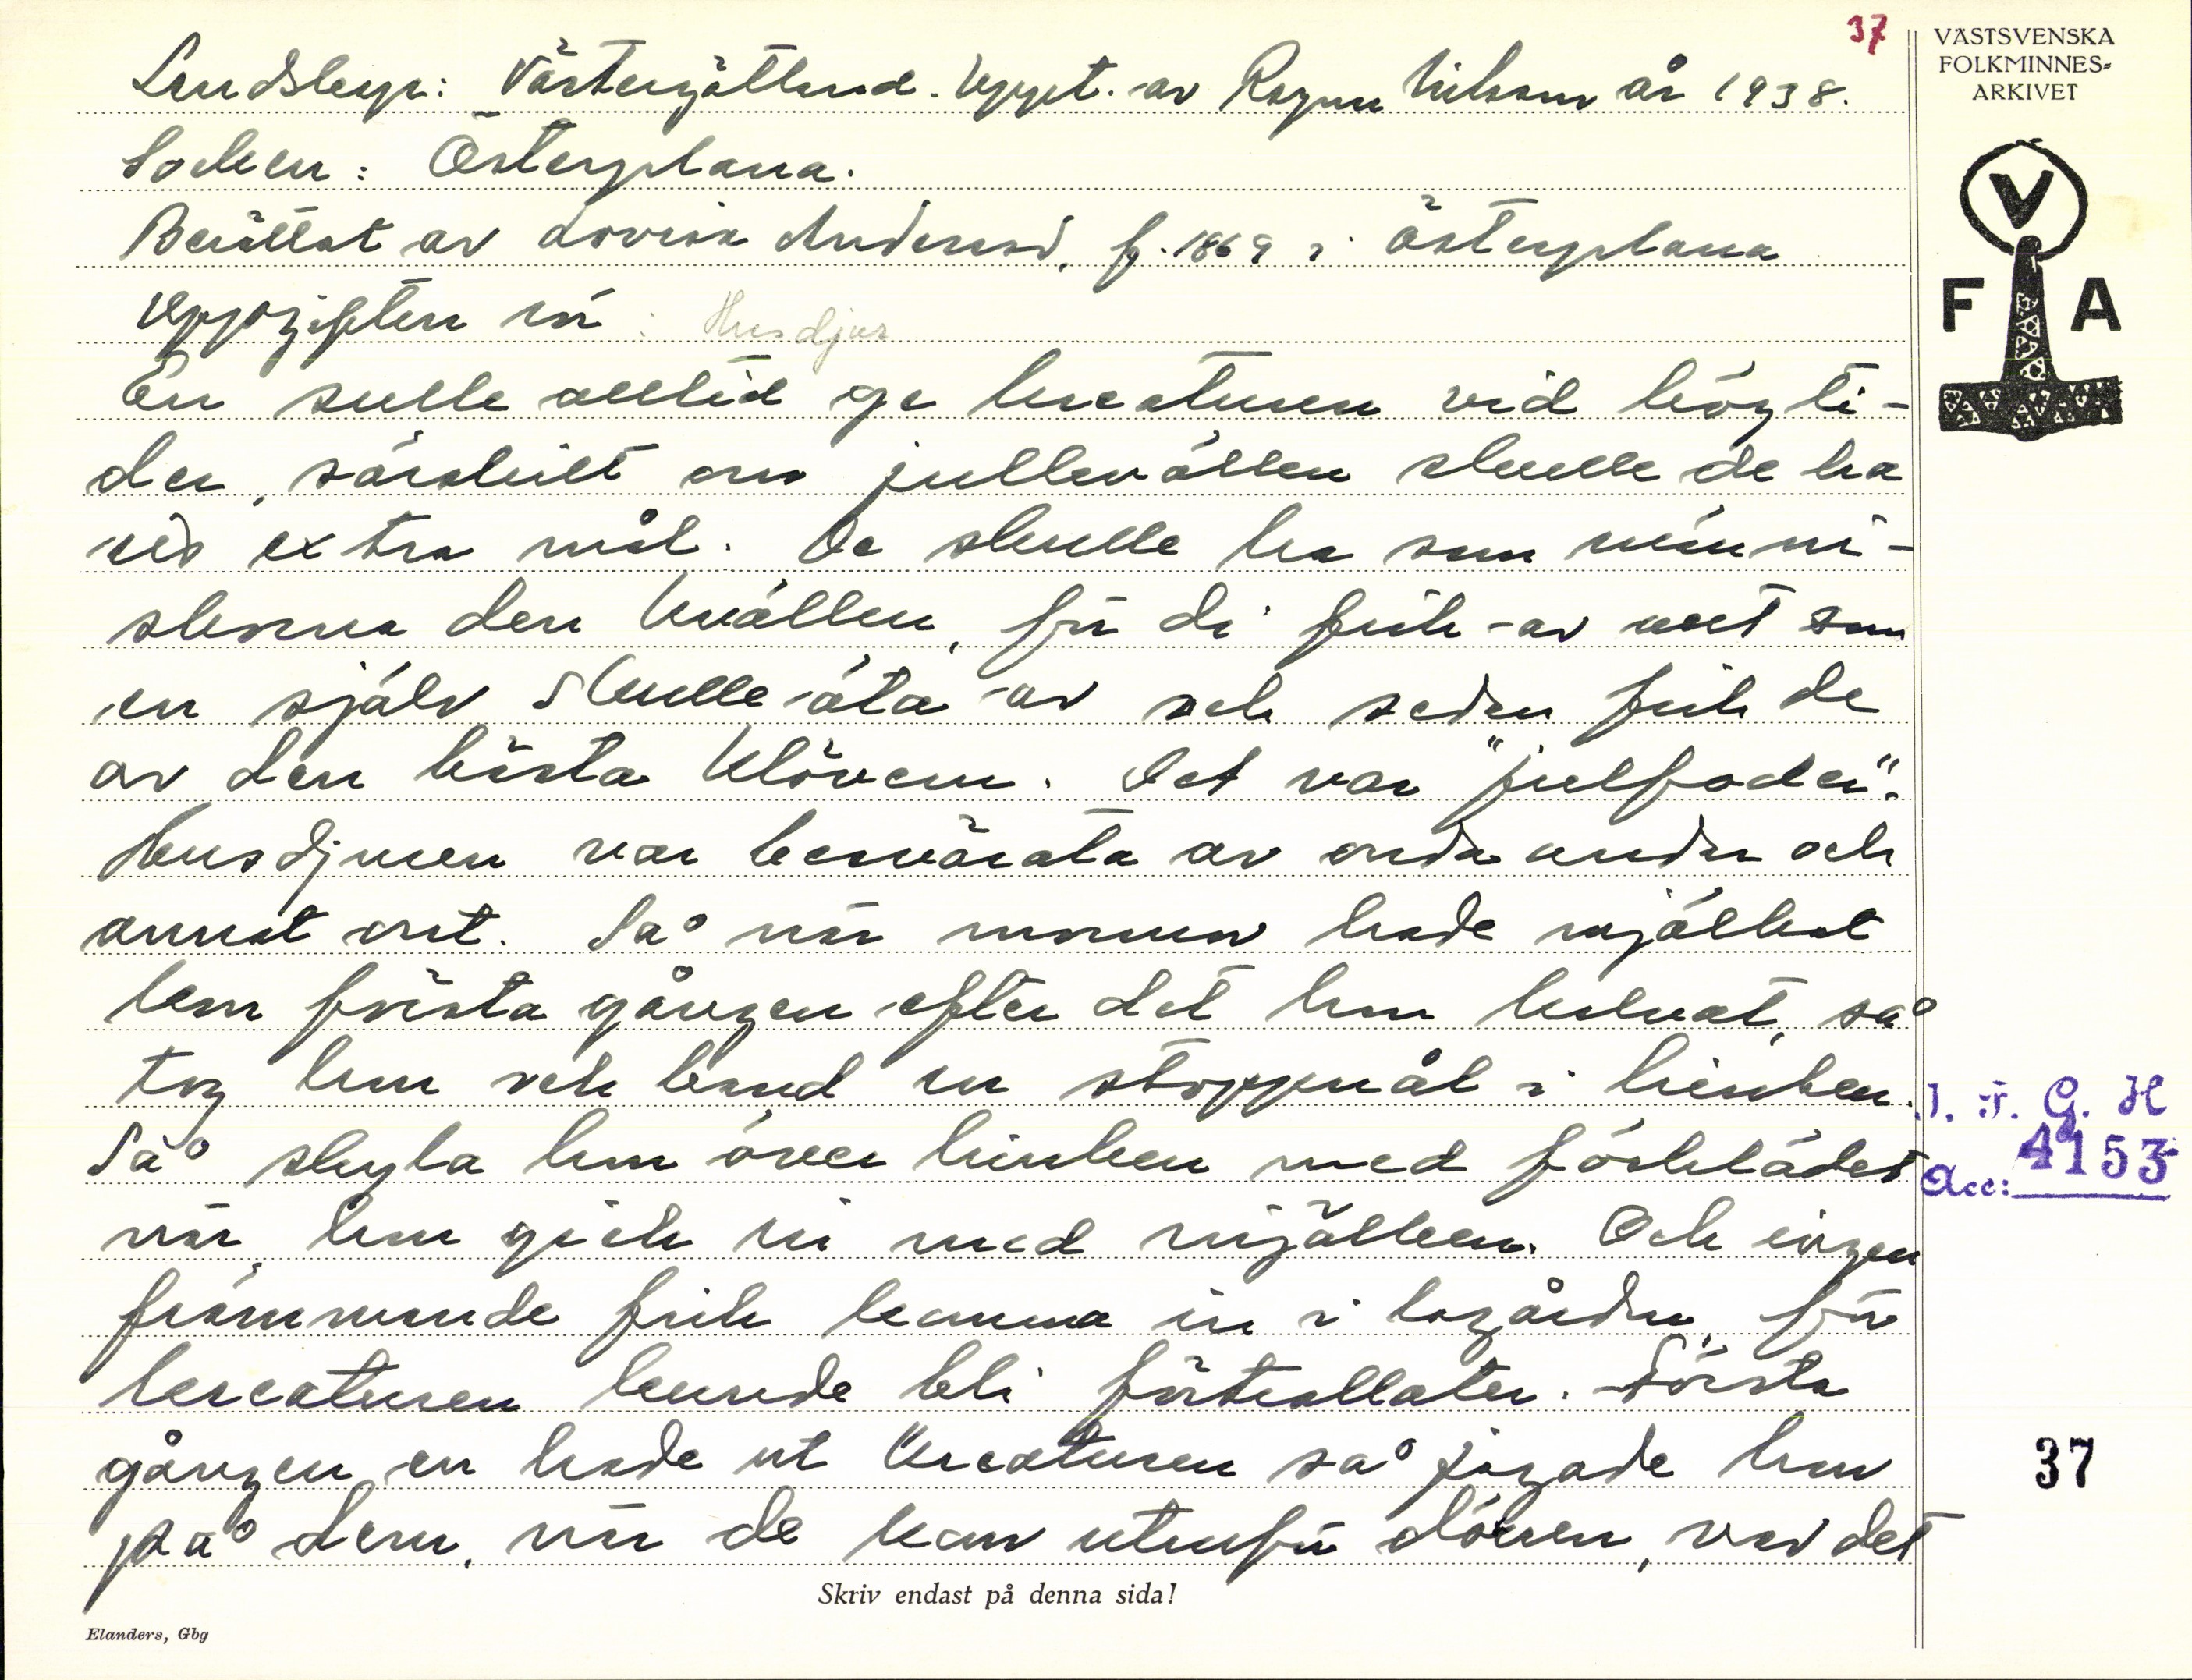 37
VÄSTSVENSKA
FOLKMINNES-
ARKIVET
Landskap: Västergötland. Uppt. av Ragnar Nilsson år 1938.
Socken: Österplana.
Berättat av Lovisa Anderson, f. 1869 i Österplana
Uppgiften rör: Husdjur
En sulle alltid ge kreaturen vid högti-
der, särskilt om jullekvällen skulle de ha
ett extra mål. De skulle ha som männi-
skorna den kvällen, för di fick av allt som
en själv skulle äta av och sedan fick de
av den bästa klövern. Det var "julfoder".
Husdjuren var besvärata av onda andar och
annat ont. Så när mormor hade mjölkat
kon första gången efter det hon kalvat, så
tog hon och band en stoppnål i hinken.
Så skyla hon över hinken med förklädet
när hon gick in med mjölken. Och ingen
främmande fick komma in i lagården, för
kreaturen kunde bli förtrollater. Första
gången en hade ut kreaturen så jagade hon
på dem, när de kom utanför dörren, var det
V
F A
I. F. G. H
Acc: 4153
37
Skriv endast på denna sida!
Elanders, Gbg